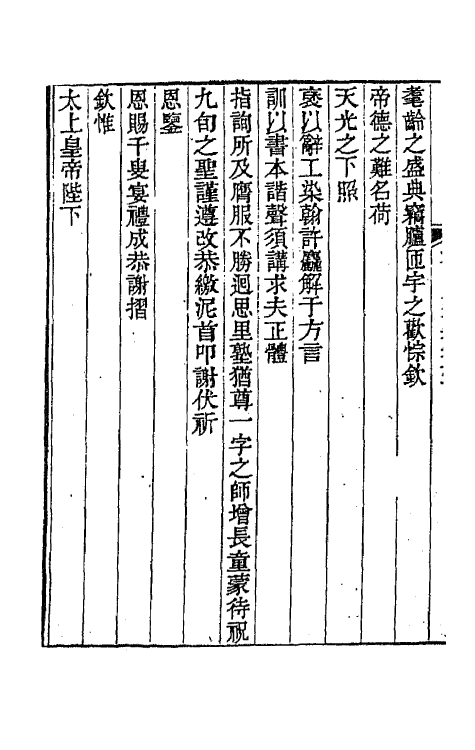 耄齡之盛典竊臚匝宇之歡悰欽
帝德之難名荷
天光之下照
褒以辭工染翰許麤解于方言
訓以書本諧聲須講求夫正體
指詢所及膺服不勝迴思里塾猶尊一字之師增長童蒙待祝
九旬之聖謹遵改恭繳泥首叩謝伏祈
恩鑒
恩賜千叟宴禮成恭謝摺
欽惟
太上皇帝陛下